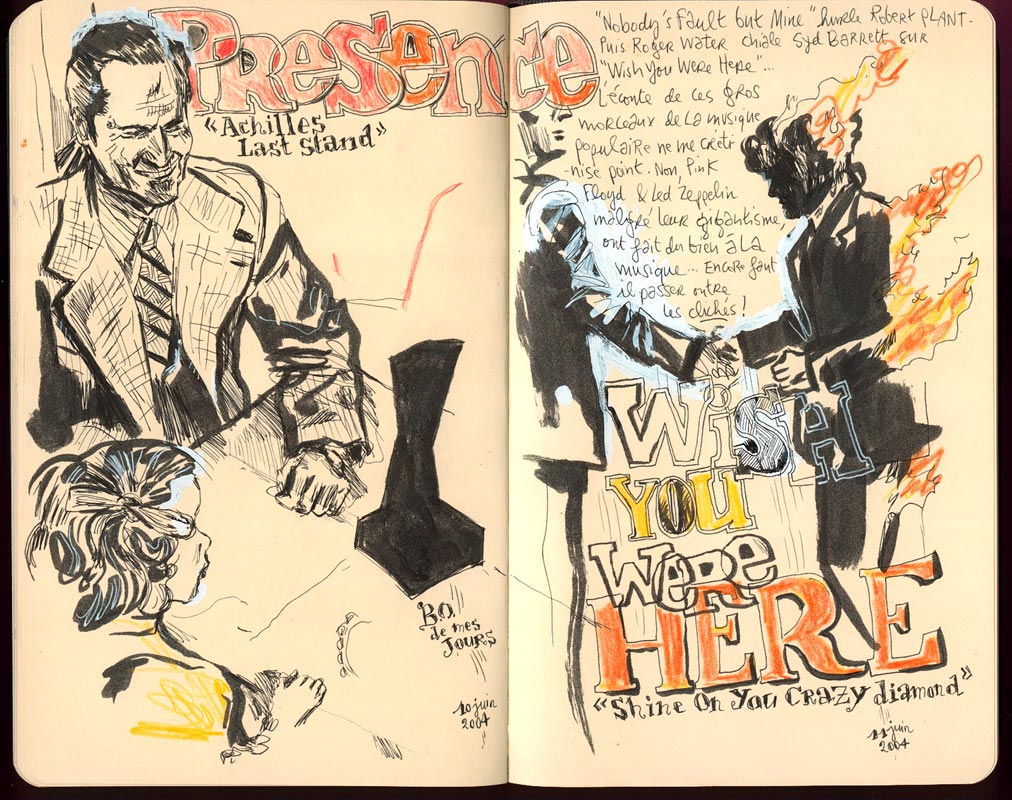 PResence
"Achilles
Last Stand"
B.O.
de mes
JOURS
10 juin
2004
"Nobody's Fault but Mine" hurle Robert PLANT-
Puis Roger Water chiale Syd Barrett sur
"Wish You Were Here"...
L'écoute de ces gros
morceaux de la musique
populaire ne me créti
-nise point. Non, Pink
Floyd & Led Zeppelin
malgré leur gigantisme
ont fait du bien à la
musique... Encore faut
il passer outre
les clichés!
WiSH
YOU
WeRe
HERE
"Shine On You Crazy diamond"
11 juin
2004